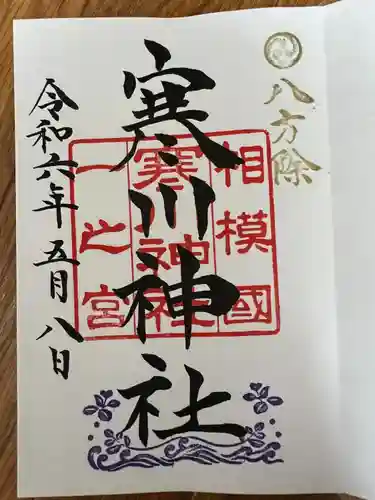 八方除
相模國
寒川神社
一之宮
寒川神社
令和六年五月八日